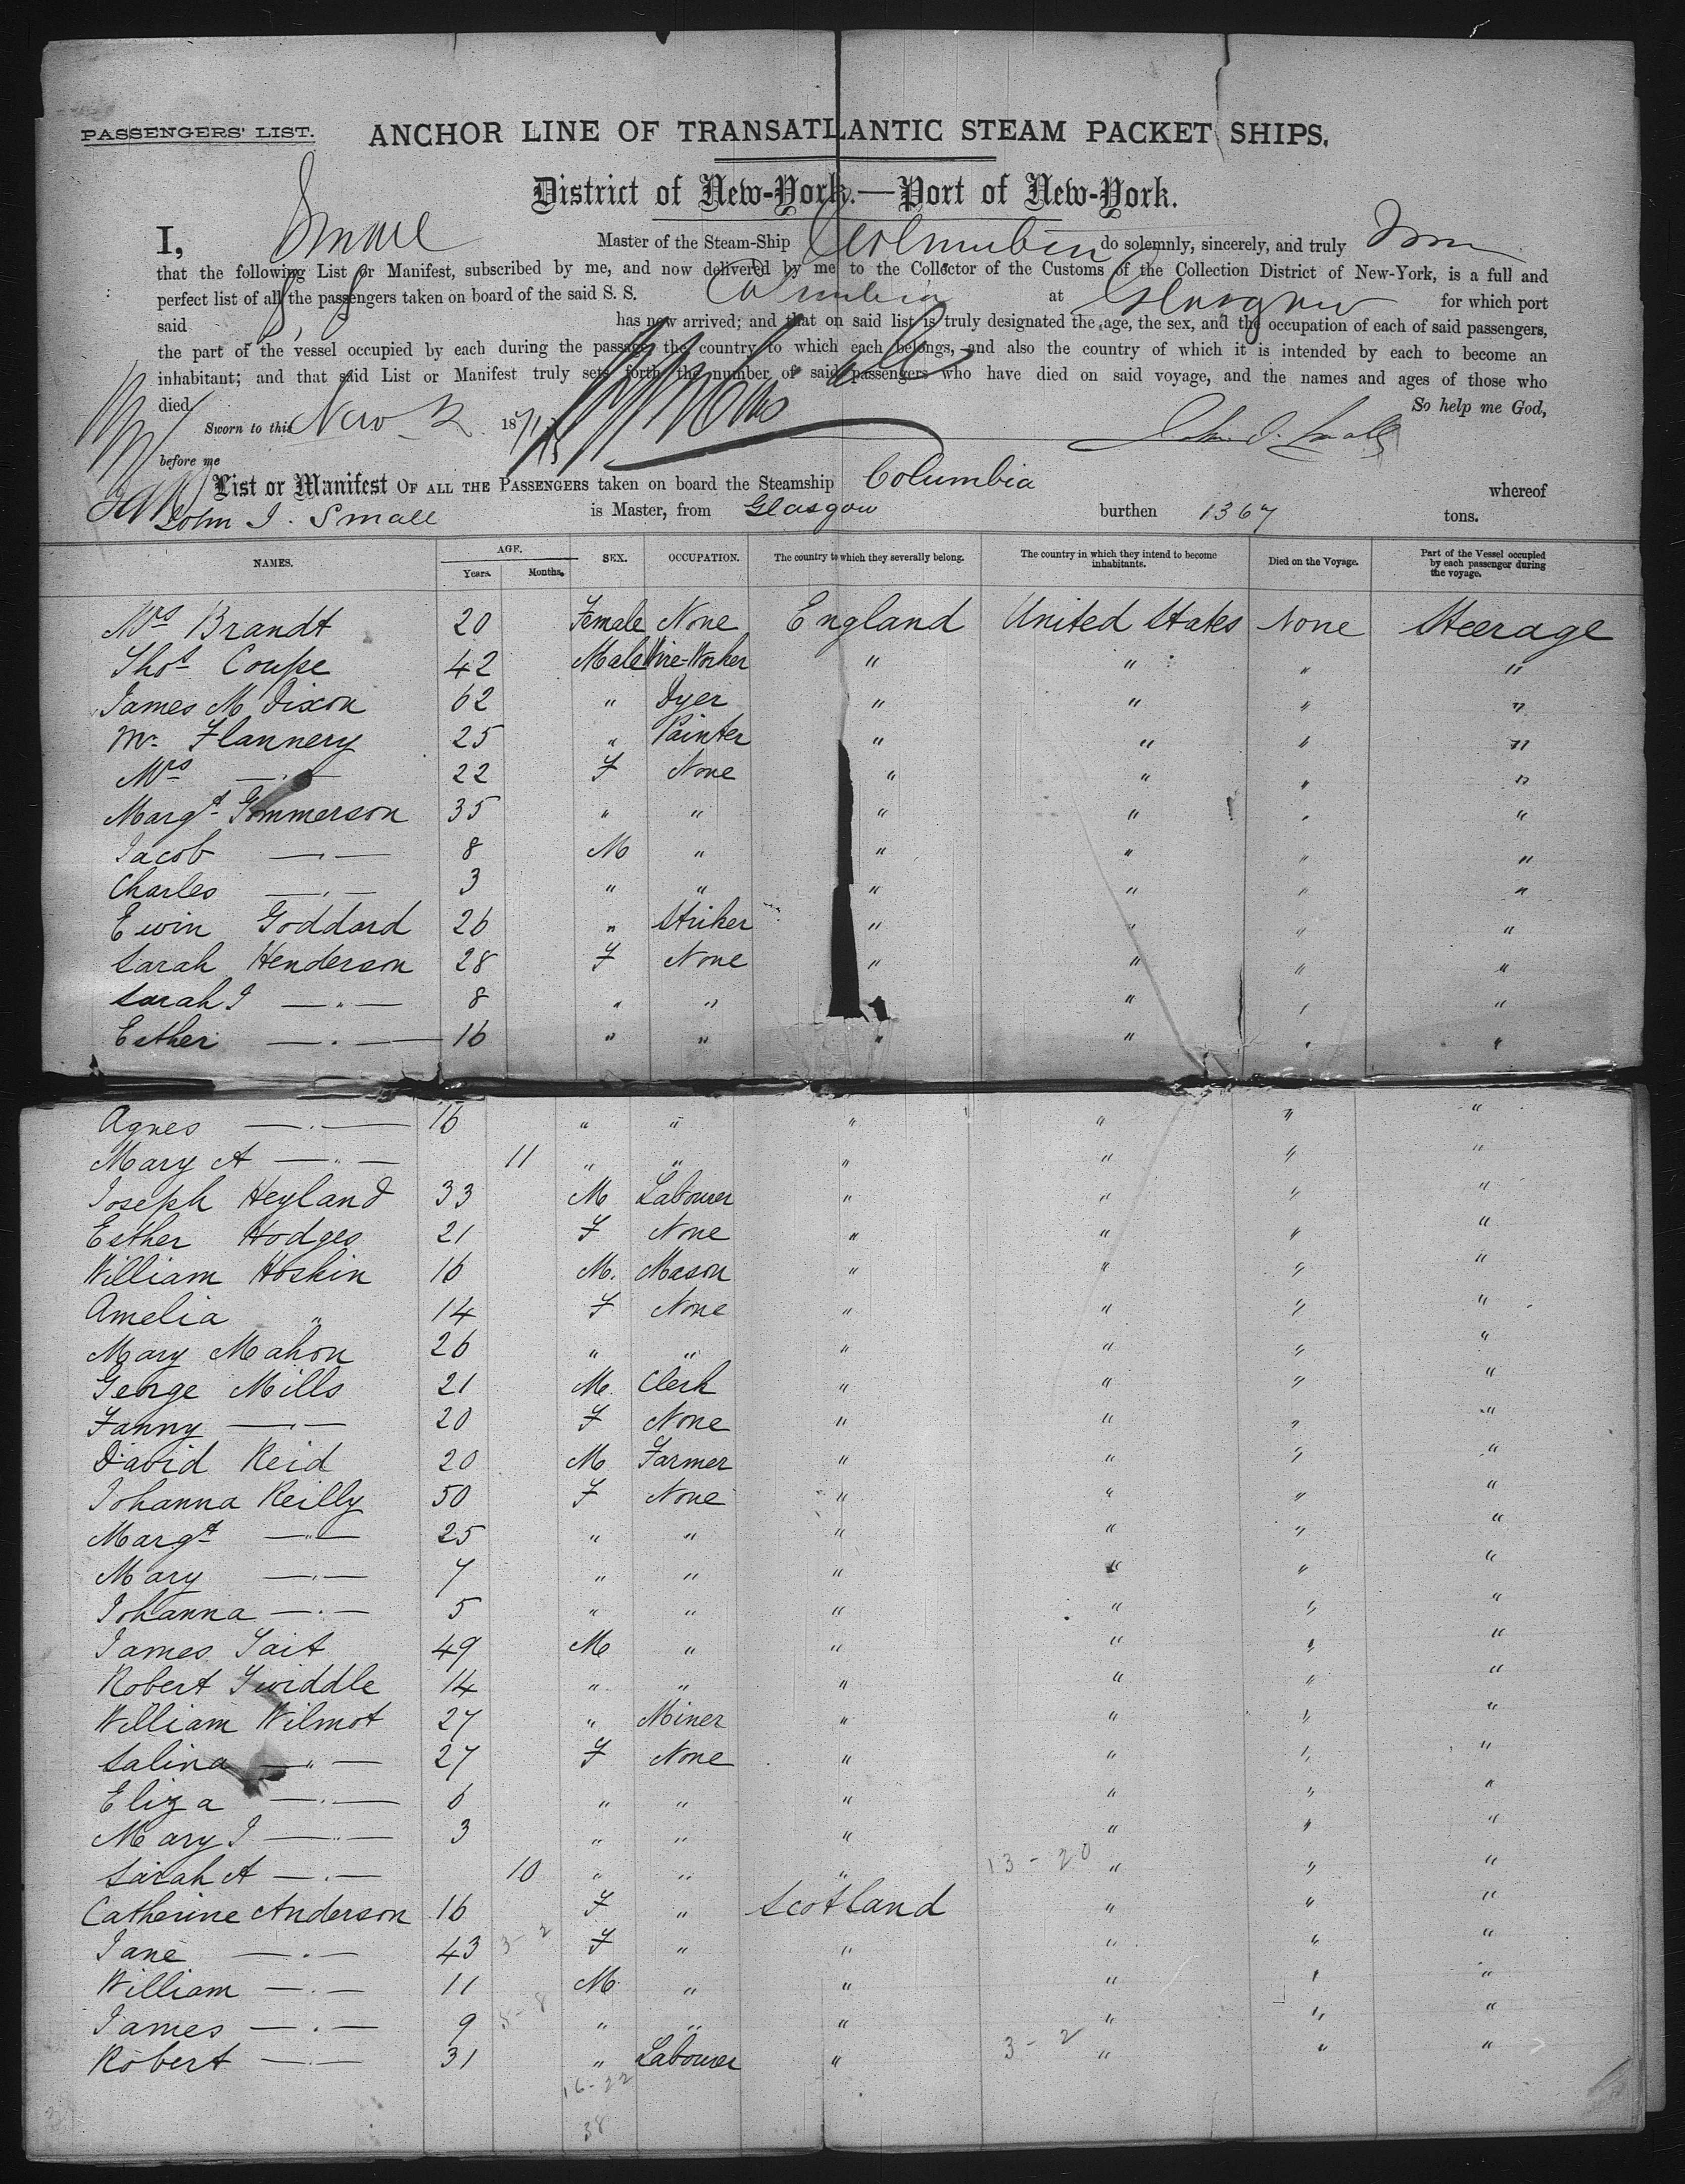 PASSENGERS' LIST. ANCHOR LINE OF TRANSATLANTIC STEAM PACKET SHIPS.
District of New-York.—Port of New-York.
I, Small Master of the Steam-Ship Columbia do solemnly, sincerely, and truly
that the following List or Manifest, subscribed by me, and now delivered by me to the Collector of the Customs of the Collection District of New-York, is a full and
perfect list of all the passengers taken on board of the said S. S. Columbia at Glasgow for which port
said has now arrived; and that on said list is truly designated the age, the sex, and the occupation of each of said passengers,
the part of the vessel occupied by each during the passage, the country to which each belongs, and also the country of which it is intended by each to become an
inhabitant; and that said List or Manifest truly sets forth the number of said passengers who have died on said voyage, and the names and ages of those who
died. So help me God,
Sworn to this Nov 187 John I. Small
before me
List or Manifest OF ALL THE PASSENGERS taken on board the Steamship Columbia whereof
John I. Small is Master, from Glasgow burthen 1367 tons.
NAMES. AGE. Years. Months. SEX. OCCUPATION. The country to which they severally belong. The country in which they intend to become inhabitants. Died on the Voyage. Part of the Vessel occupied by each passenger during the voyage.
Mrs Brandt 20 Female None England United States None Steerage
Thos Coupe 42 Male Wire-Worker " " " "
James M Dixon 62 " Dyer " " " "
Mr Flannery 25 " Painter " " " "
Mrs —"— 22 F None " " " "
Margt Gommerson 35 " " " " " "
Jacob —"— 8 M " " " " "
Charles —"— 3 " " " " " "
Ewin Goddard 26 " Striker " " " "
Sarah Henderson 28 F None " " " "
Sarah J —"— 8 " " " " "
Esther —"— 16 " " " " " "
Agnes —"— 16 " " " " " "
Mary A —"— 11 " " " " " "
Joseph Heyland 33 M Labourer " " " "
Esther Hodges 21 F None " " " "
William Hoskin 16 M. Mason " " " "
Amelia " 14 F None " " " "
Mary Mahon 26 " " " " " "
George Mills 21 M. Clerk " " " "
Fanny —"— 20 F None " " " "
David Reid 20 M Farmer " " " "
Johanna Reilly 50 F None " " " "
Margt —"— 25 " " " " " "
Mary —"— 7 " " " " " "
Johanna —"— 5 " " " " " "
James Tait 49 M " " " " "
Robert Twiddle 14 " " " " " "
William Wilmot 27 " Miner " " " "
Salina —"— 27 F None " " " "
Eliza —"— 6 " " " " " "
Mary J —"— 3 " " " " " "
Sarah A —"— 10 " " " 13-20 " " "
Catherine Anderson 16 F " Scotland " " "
Jane —"— 43 3-2 F " " " " "
William —"— 11 M " " " " "
James —"— 9 5-8 " " " " " "
Robert —"— 31 " Labourer " 3-2 " " "
16-22
38